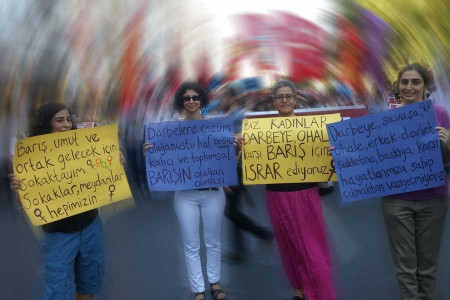 Barış, umut ve
ortak gelecek için
sokaktayım
Sokaklar, meydanlar
hepimizin
Darbelere çözüm
OHAL değil
kalıcı ve toplumsal
BARIŞIN olağan
BİZ KADINLAR
DARBEYE OHALE
karşı BARIŞ için
ISRAR ediyoruz
Darbeye, savaşa,
ohale, erkek-devlet
şiddetine, baskıya karşı
hayatlarımıza sahip
çıkmaktan vazgeçmiyoruz